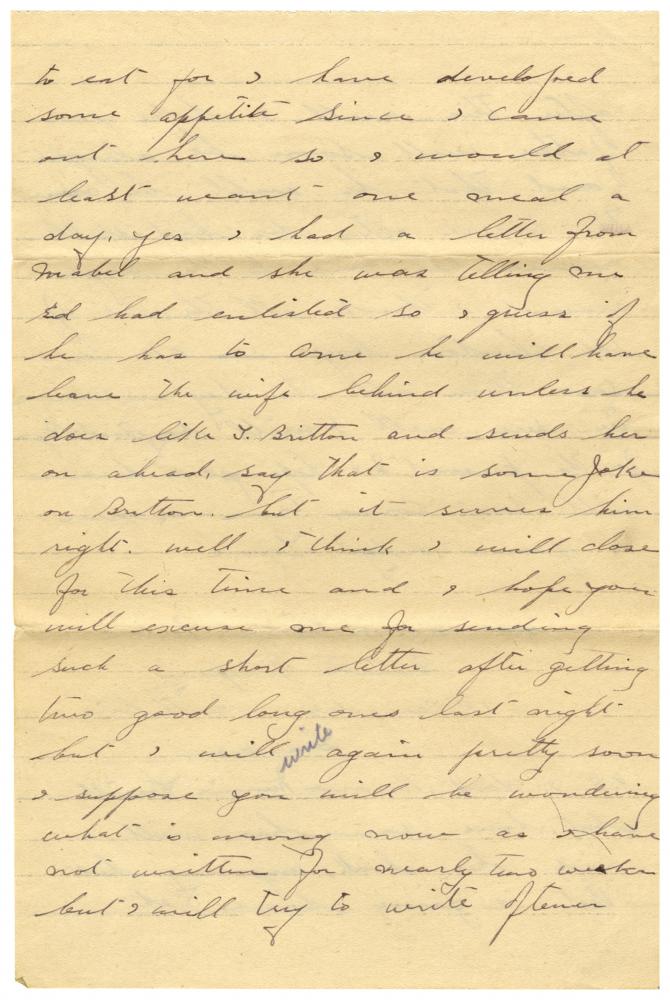 to eat for I have developed
some appetite since I came
out here so I would at
least want one meal a
day. yes I had a letter from
Mabel and she was telling me
Ed had enlisted so I guess if
he has to come he will have
leave the wife behind unless he
does like T. Britton and sends her
on ahead, say that is some joke
on Britton. but it serves him
right. well I think I will close
for this time and I hope you
will excuse me for sending
such a short letter after getting
two good long ones last night
but I will write again pretty soon
I suppose you will be wondering
what is wrong now as I have
not written for nearly two weeks
but I will try to write oftener